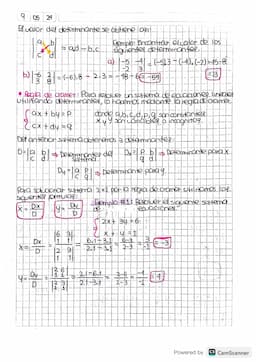 9 05 24
El valor del determinante se obtiene así:
|a b|
|c d| = a.d - b.c
Ejemplo: Encontrar el valor de los siguientes determinantes.
a) |-5 -4|
|-2 3| = (-5).3 - (-4).(-2) = -15-8
= -23
b) |-6 2|
|3 8| = (-6).8 - 2.3 =
• Regla de Cramer: Para resolver un sistema de ecuaciones lineales
utilizando determinantes, lo hacemos mediante la regla de Cramer.
{ax + by = p
{cx + dy = q
donde a,b,c,d,p,q son constantes
x y y son variables o incógnitas
Del anterior sistema obtenemos 3 determinantes:
D = |a b|
|c d| → Determinantes del sistema
Dx = |p b|
|q d| → Determinante para x
Dy = |a p|
|c q| → Determinante para y
Para solucionar sistema 2x2 por la regla de Cramer utilizamos las
siguientes fórmulas:
x = Dx/D
y = Dy/D
Ejemplo #1: Resolver el siguiente sistema de ecuaciones
{2x + 3y = 6
{x + y = 1
x = Dx/D = |6 3| |1 1| / |2 3| |1 1| = 6.1-3.1 / 2.1-3.1 = 6-3 / 2-3 = 3/-1 = -3
y = Dy/D = |2 6| |1 1| / |2 3| |1 1| = 2.1-6.1 / 2.1-3.1
Powered by CamScanner